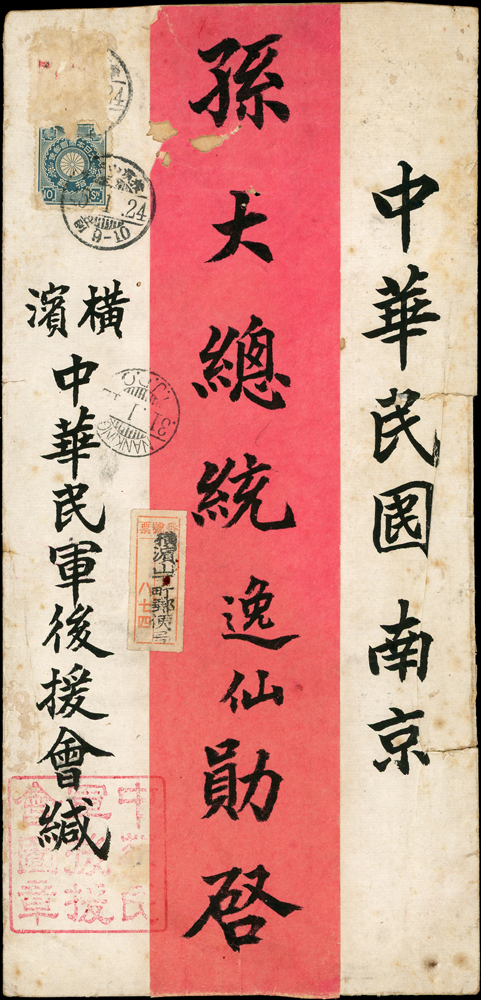 中華民國 南京
孫大總統 逸仙 勛啓
橫濱
中華民軍後援會緘
10 Sn
1 .24
9-10
24
NANKING
31
1
橫濱山下町郵便局
八七四
中華民
軍後援
會圖章